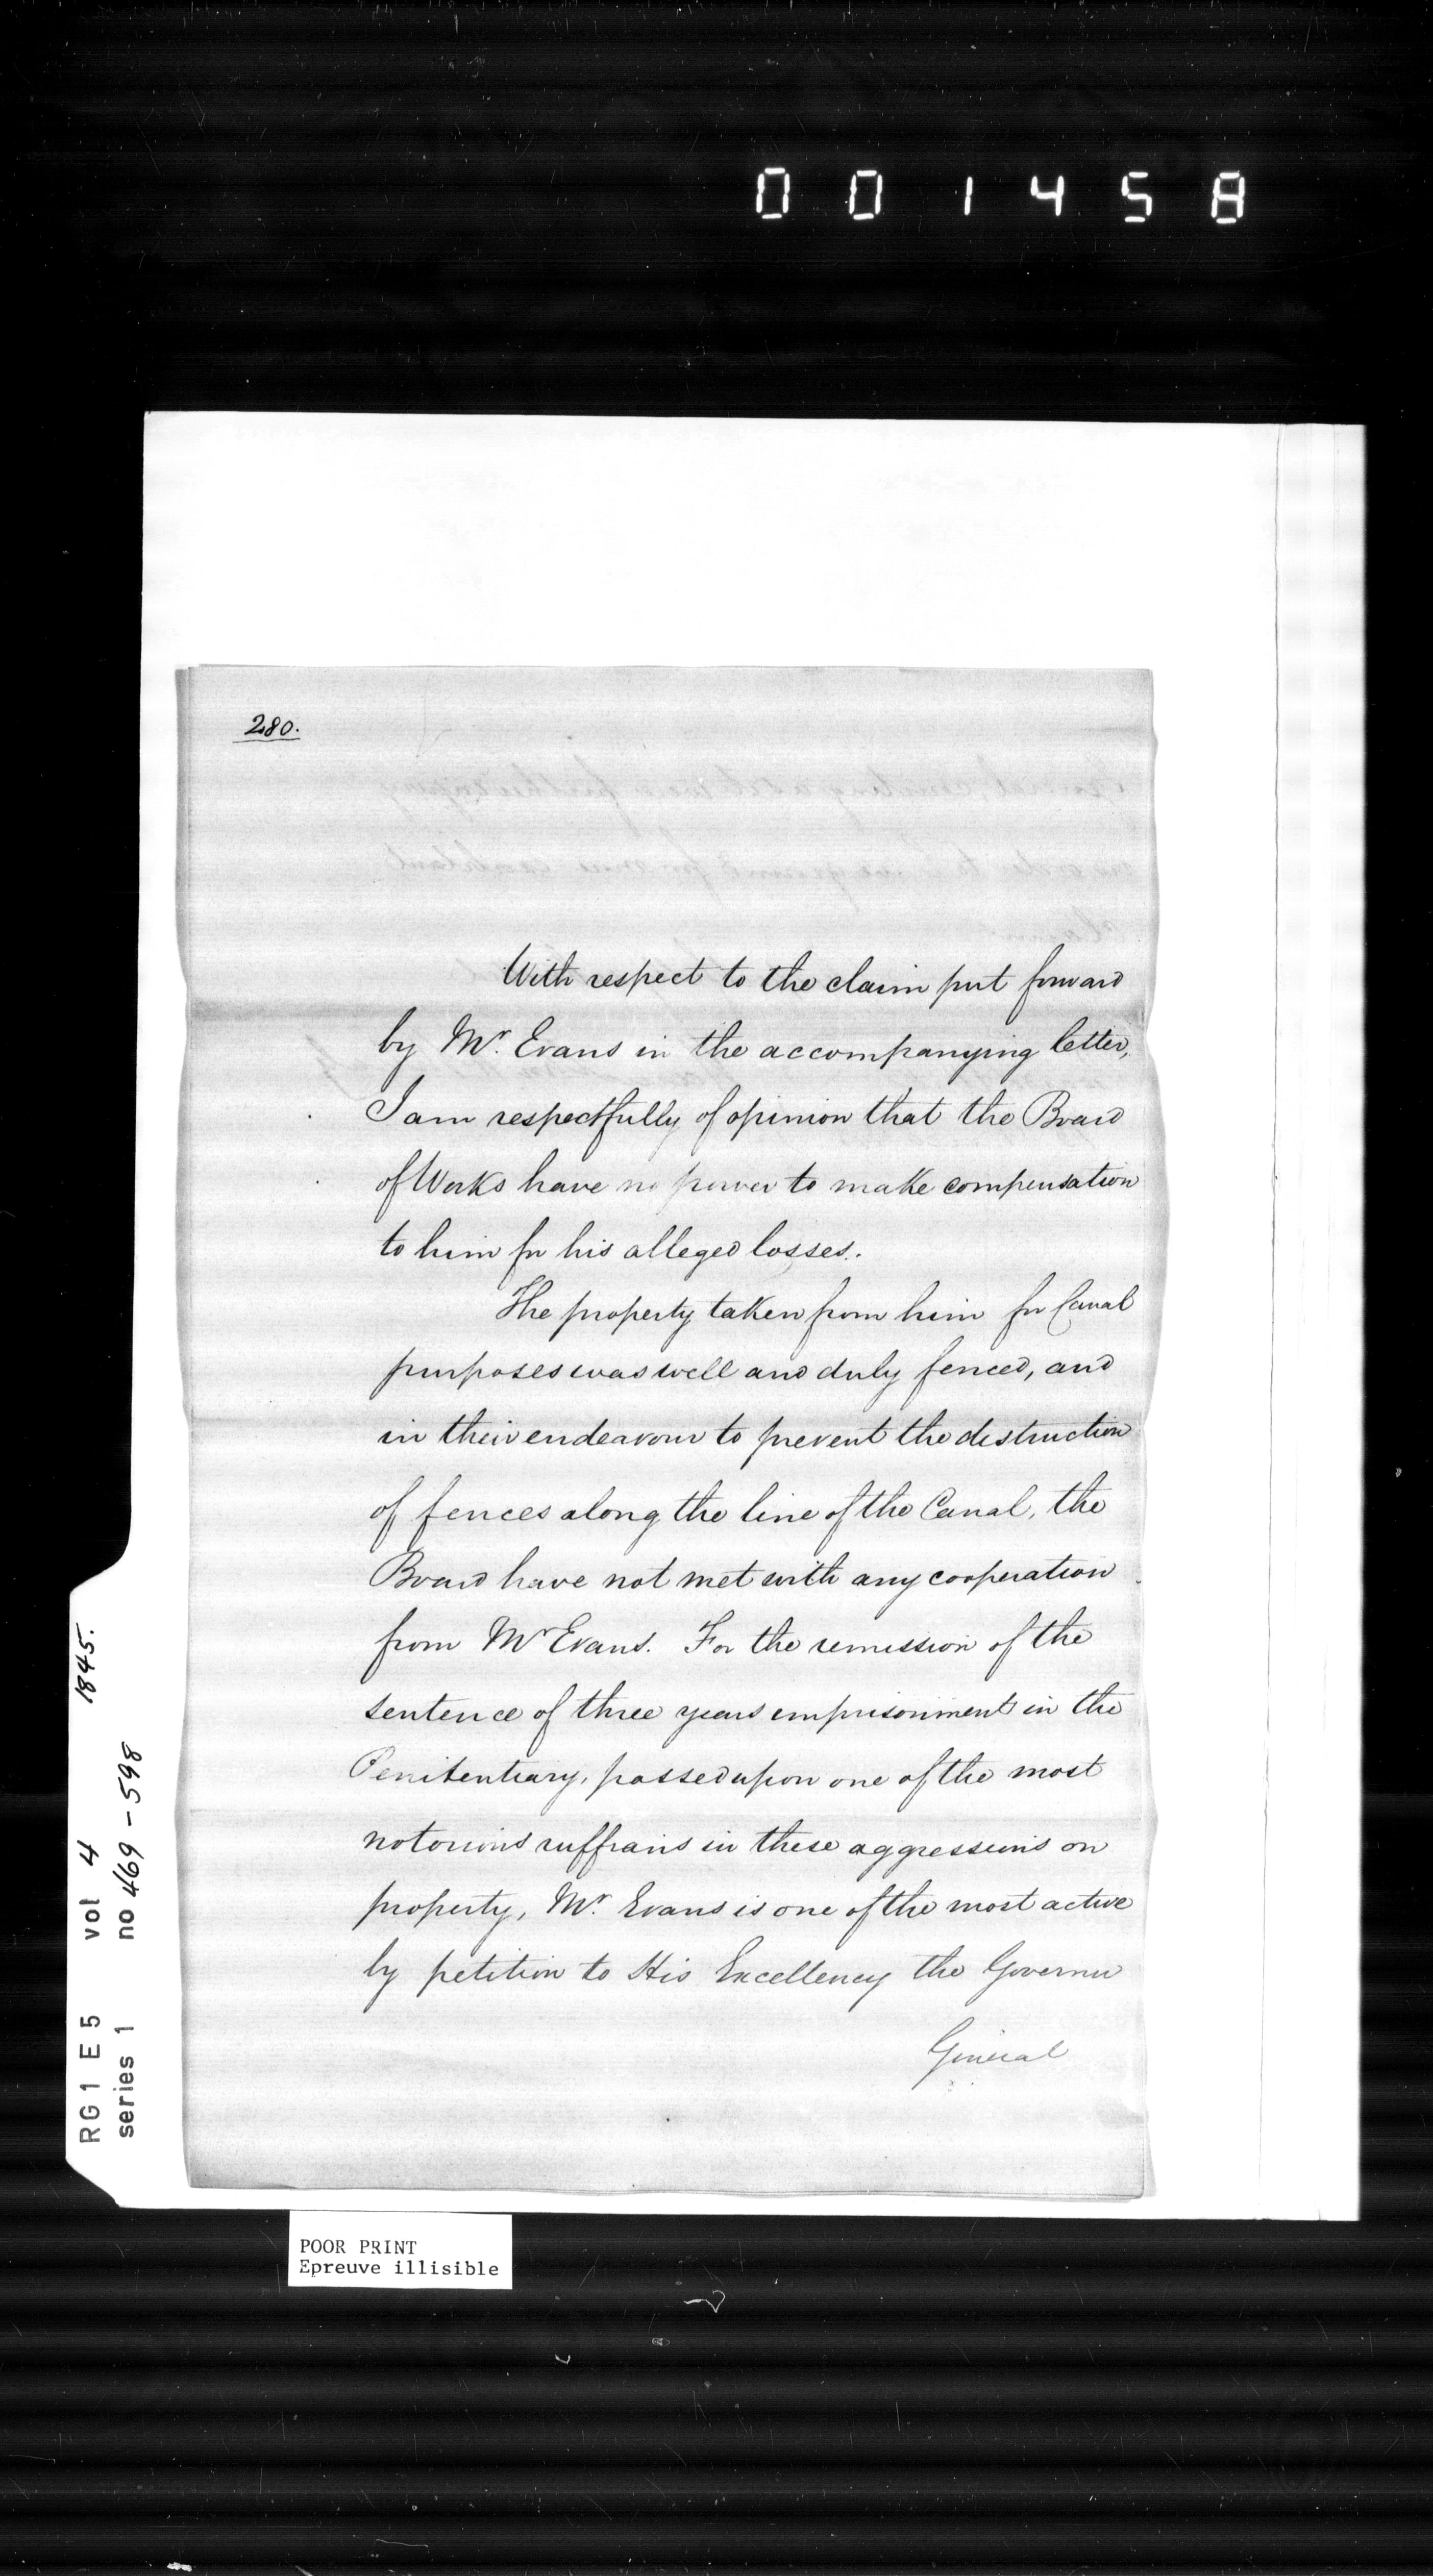 001458
280.
With respect to the claim put forward
by Mr. Evans in the accompanying letter,
I am respectfully of opinion that the Board
of Works have no power to make compensation
to him for his alleged losses.
The property taken from him for Canal
purposes was well and duly fenced, and
in their endeavour to prevent the destruction
of fences along the line of the Canal, the
Board have not met with any cooperation
from Mr Evans. For the remission of the
sentence of three years imprisonment in the
Penitentiary, passed upon one of the most
notorious ruffians in these aggressions on
property, Mr. Evans is one of the most active
by petition to His Excellency the Governor
General
RG1 E5 vol 4 1845.
series 1 no 469-598
POOR PRINT
Epreuve illisible